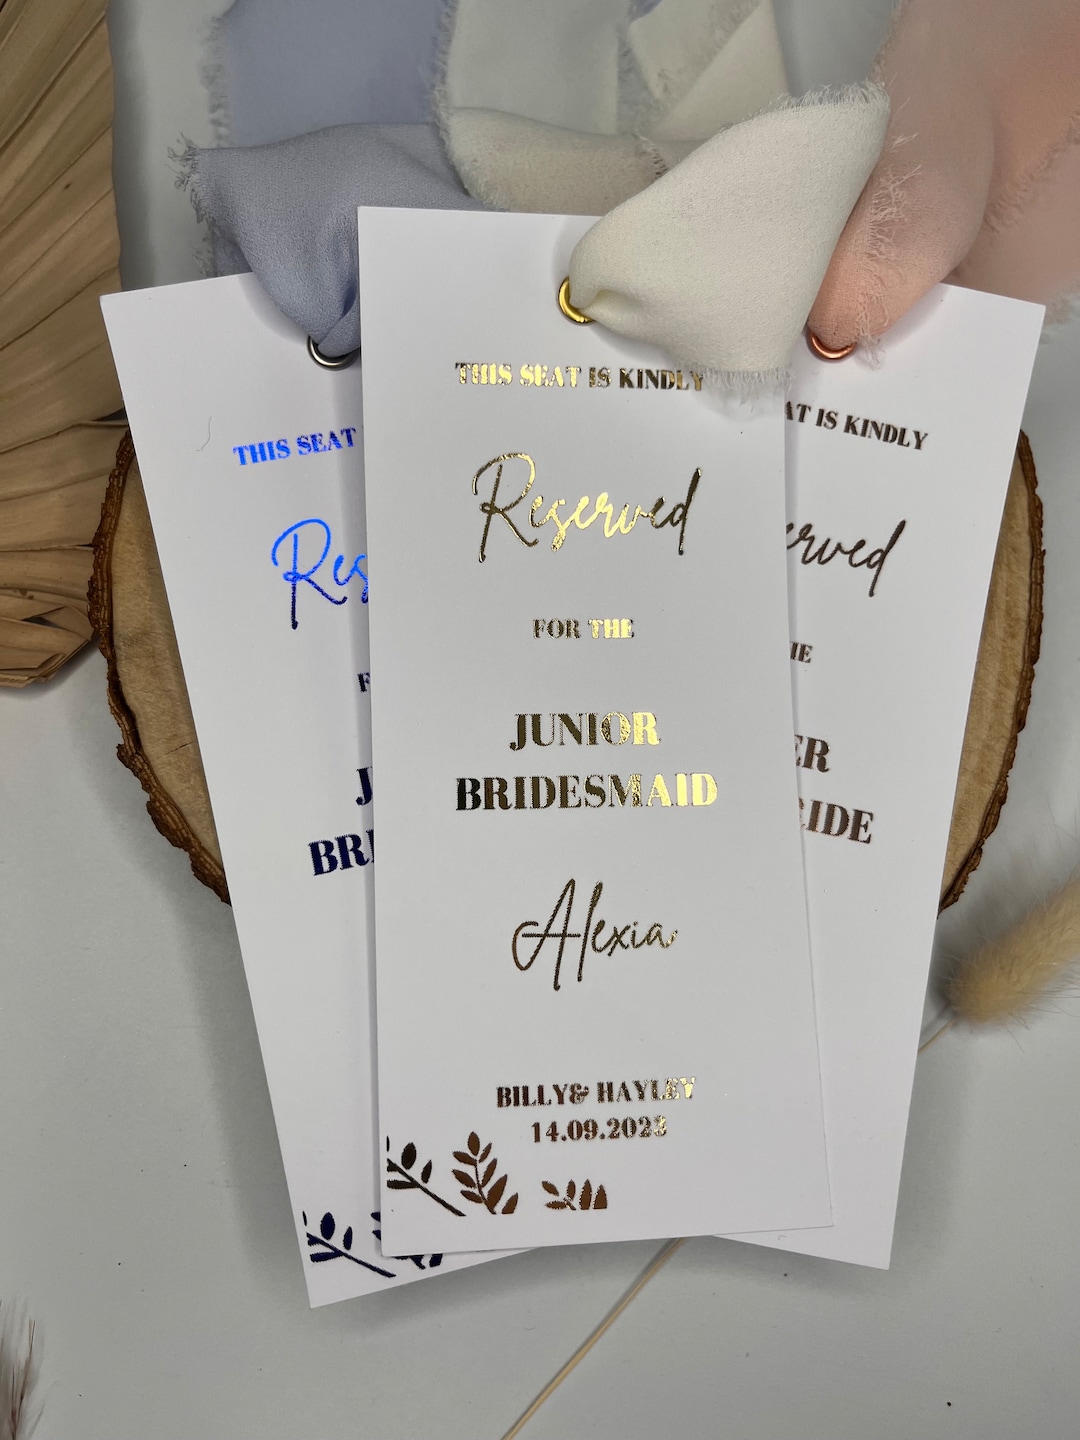 THIS SEAT IS KINDLY
Reserved
FOR THE
JUNIOR
BRIDESMAID
Alexia
BILLY& HAYLEY
14.09.2023
THIS SEAT
Res
F
J
BRI
AT IS KINDLY
erved
HE
ER
RIDE